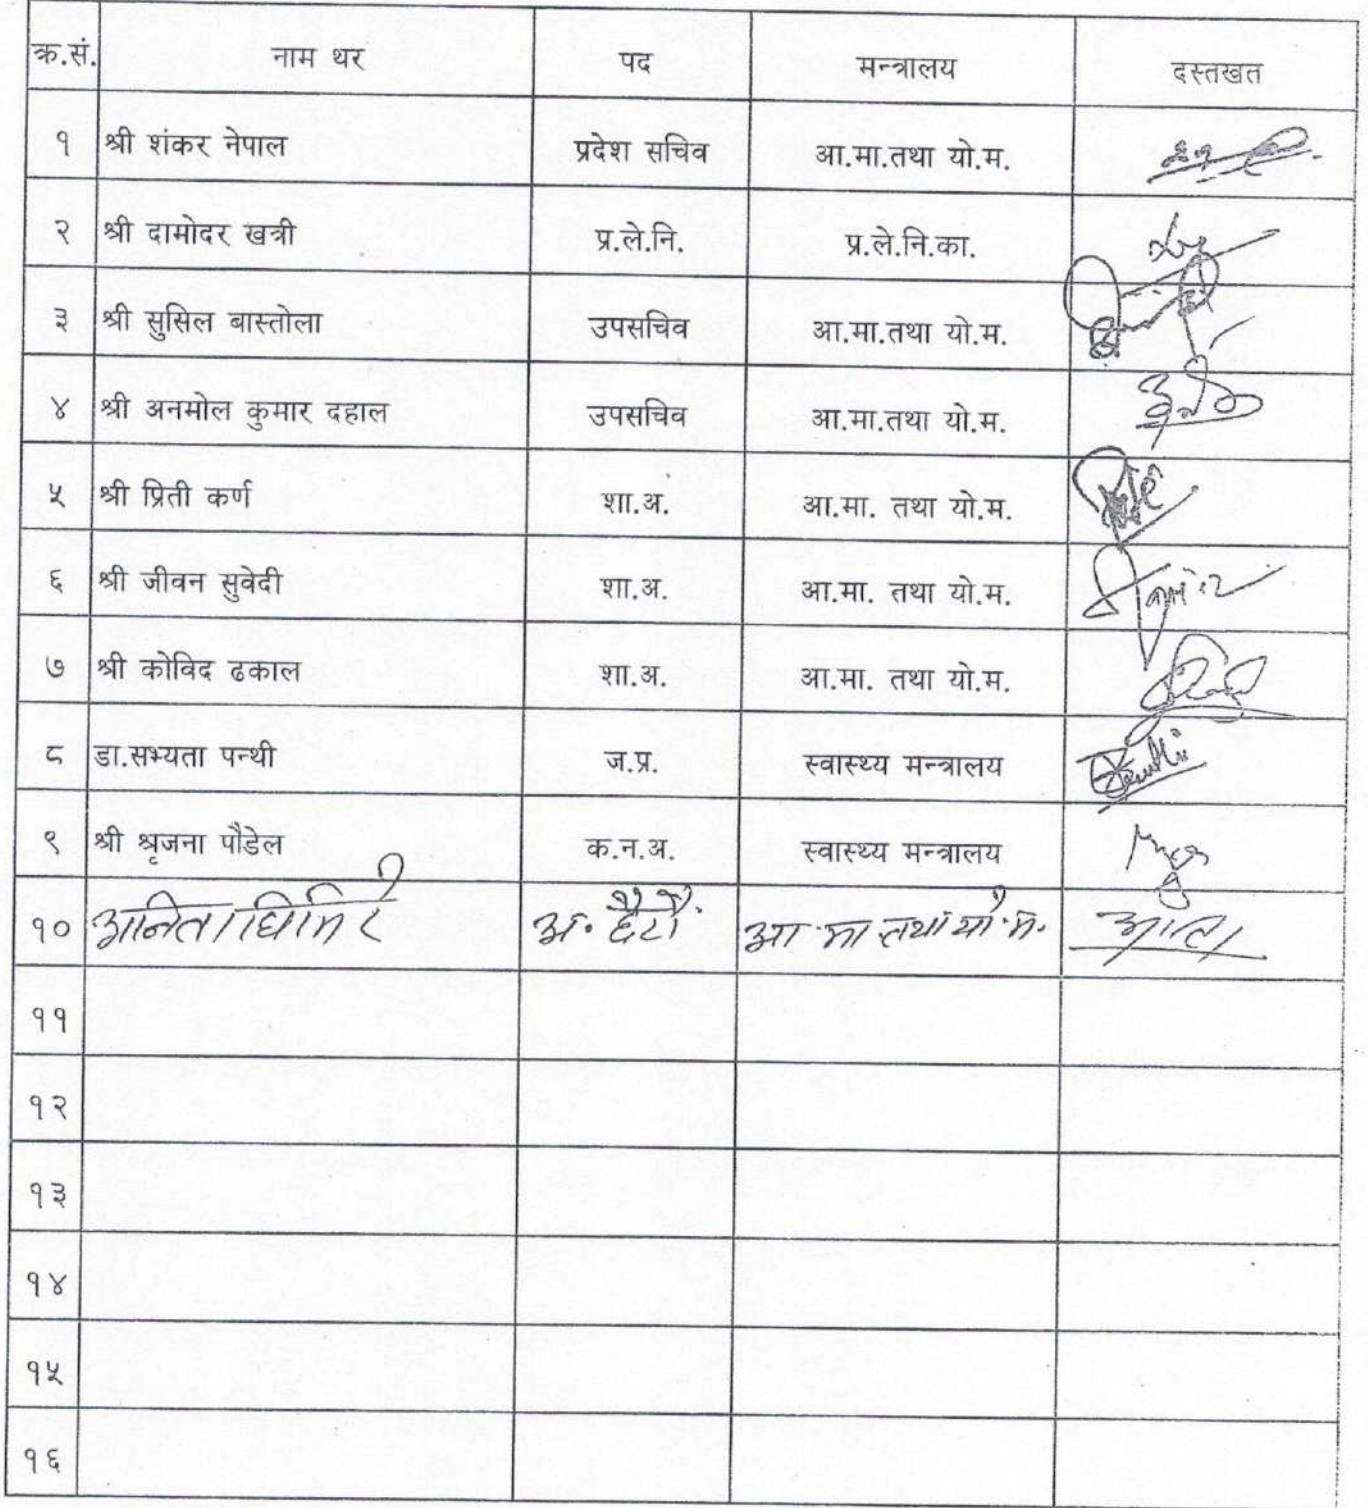 क्र.सं. नाम थर पद मन्त्रालय दस्तखत
१ श्री शंकर नेपाल प्रदेश सचिव आ.मा.तथा यो.म.
२ श्री दामोदर खत्री प्र.ले.नि. प्र.ले.नि.का.
३ श्री सुसिल बास्तोला उपसचिव आ.मा.तथा यो.म.
४ श्री अनमोल कुमार दहाल उपसचिव आ.मा.तथा यो.म.
५ श्री प्रिती कर्ण शा.अ. आ.मा. तथा यो.म.
६ श्री जीवन सुवेदी शा.अ. आ.मा. तथा यो.म.
७ श्री कोविद ढकाल शा.अ. आ.मा. तथा यो.म.
८ डा.सभ्यता पन्थी ज.प्र. स्वास्थ्य मन्त्रालय
९ श्री श्रृजना पौडेल क.न.अ. स्वास्थ्य मन्त्रालय
१० अनिता घिमिरे अ. आ.मा तथा यो.म.
११
१२
१३
१४
१५
१६